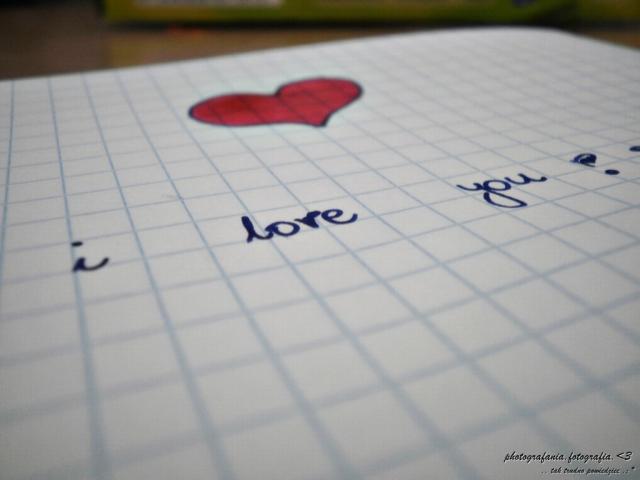 i love you ?
photografania.fotografia.<3
.. tak trudno powiedzieć .:*